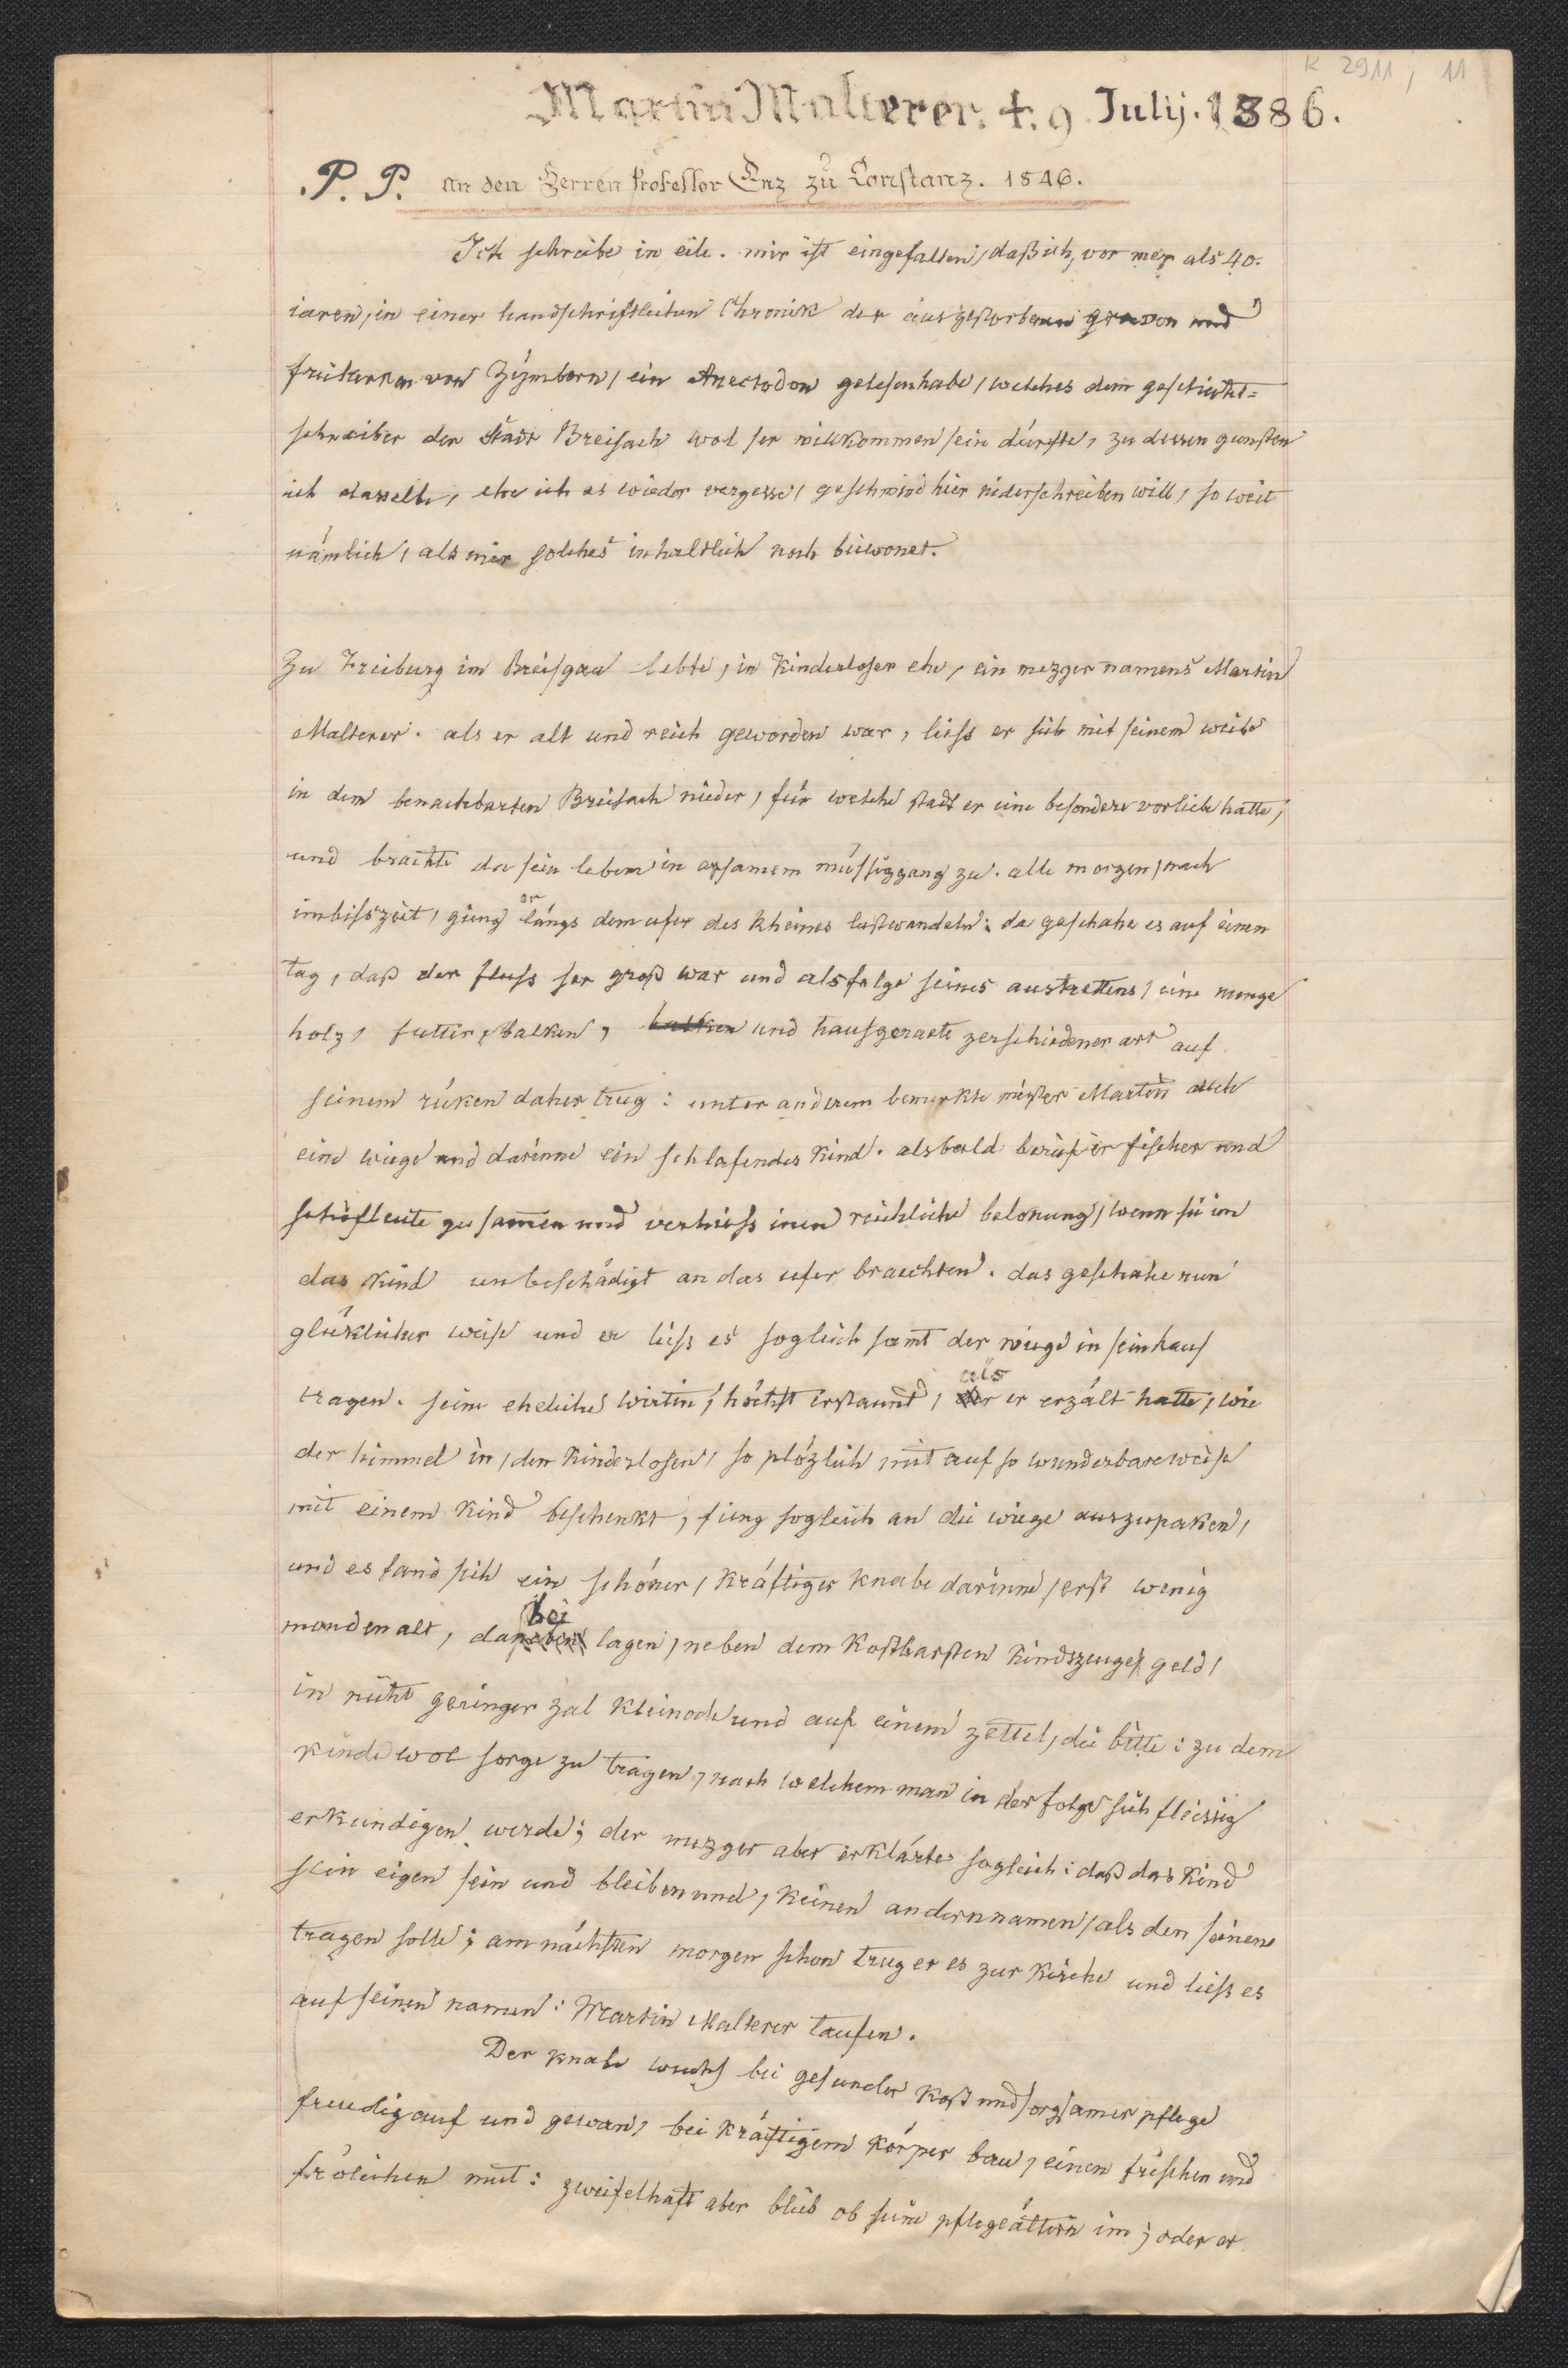 K 2911, 11
Martin Malterer. †. 9 Julij. 1386.
.P. P. an den Herren Professor Enz zu Constanz. 1846.
Ich schreibe in eile. mir ist eingefallen, daß ich, vor mer als 40.
iaren, in einer handschriftlichen Chronik der ausgestorbenen graven und
freiherren von Zymbern, ein Anectodon gelesen habe, welches dem geschicht-
schreiber der stadt Breisach wol ser willkommen sein dürfte, zu dessen gunsten
ich dasselbe, ehe ich es wieder vergesse, geschwind hier niderschreiben will, so weit
nämlich, als mir solches inhaltlich noch beiwonet.
Zu Freiburg im Breisgau lebte, in kinderloser ehe, ein mezger namens Martin
Malterer. als er alt und reich geworden war, liess er sich mit seinem weibe
in dem benachbarten Breisach nieder, für welche stadt er eine besondere vorliebe hatte,
und brachte da sein leben in müssiggang zu. alle morgen, nach
imbisszeit, gieng er längs dem ufer des Rheines lustwandeln: da geschahe es auf einen
tag, daß der fluss ser groß war und als folge seines austrettens, eine menge
holz, futter, balken, balken und hausgeraete zerschiedener art auf
seinem rüken daher trug: unter anderem bemerkte meister Martin auch
eine wiege und darinne ein schlafendes kind. alsbald berief er fischer und
schifleute zusamen und verhiess inen reichliche belonung, wenn sie im
das kind unbeschädigt an das ufer braechten. das geschahe nun
glüklicher weise und er liess es sogleich samt der wiege in sein haus
tragen. seine eheliche wirtin, höchst erstaunt, als er erzält hatte, wie
der himmel in, den kinderlosen, so plözlich mit auf so wunderbare weise
mit einem kind beschenkt, fieng sogleich an die wiege auszupaken,
und es fand sich ein schöner, kräftiger knabe darinne, erst wenig
monden alt, dabei lagen, neben dem kostbarsten kindszeuge, geld,
in nicht geringer zal kleinode und auf einem zettel, die bitte: zu dem
kinde wol sorge zu tragen, nach welchem man in der folge sich fleissig
erkundigen werde; der mezger aber erklärte sogleich: daß das kind
sein eigen sein und bleiben und, keinen andern namen, als den seinen
tragen solle; am nächsten morgen schon trug er es zur kirche und liess es
auf seinen namen: Martin Malterer taufen.
Der knabe wuchs bei gesunder kost und sorgsamer pflege
freudig auf und gewan, bei kräftigem körper bau, einen frischen und
frölichen mut: zweifelhaft aber blieb ob seine pflegeältern im, oder er